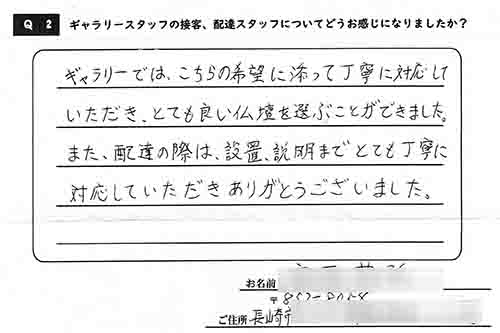 Q 2 ギャラリースタッフの接客、配達スタッフについてどうお感じになりましたか？
ギャラリーでは、こちらの希望に添って丁寧に対応して
いただき、とても良い仏壇を選ぶことができました。
また、配達の際は、設置、説明までとても丁寧に
対応していただきありがとうございました。
お名前
〒852-8024
ご住所 長崎市